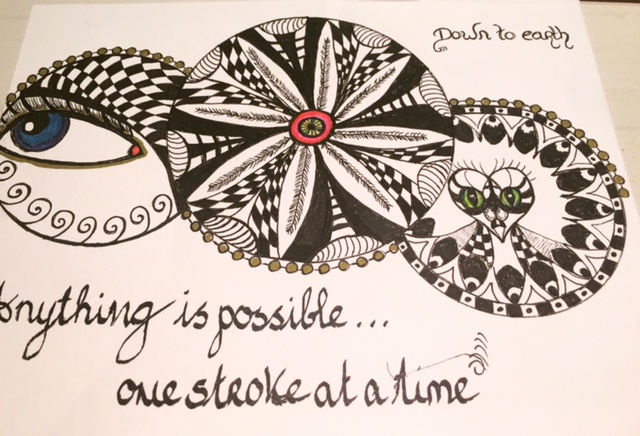 Down to earth
Anything is possible...
one stroke at a time